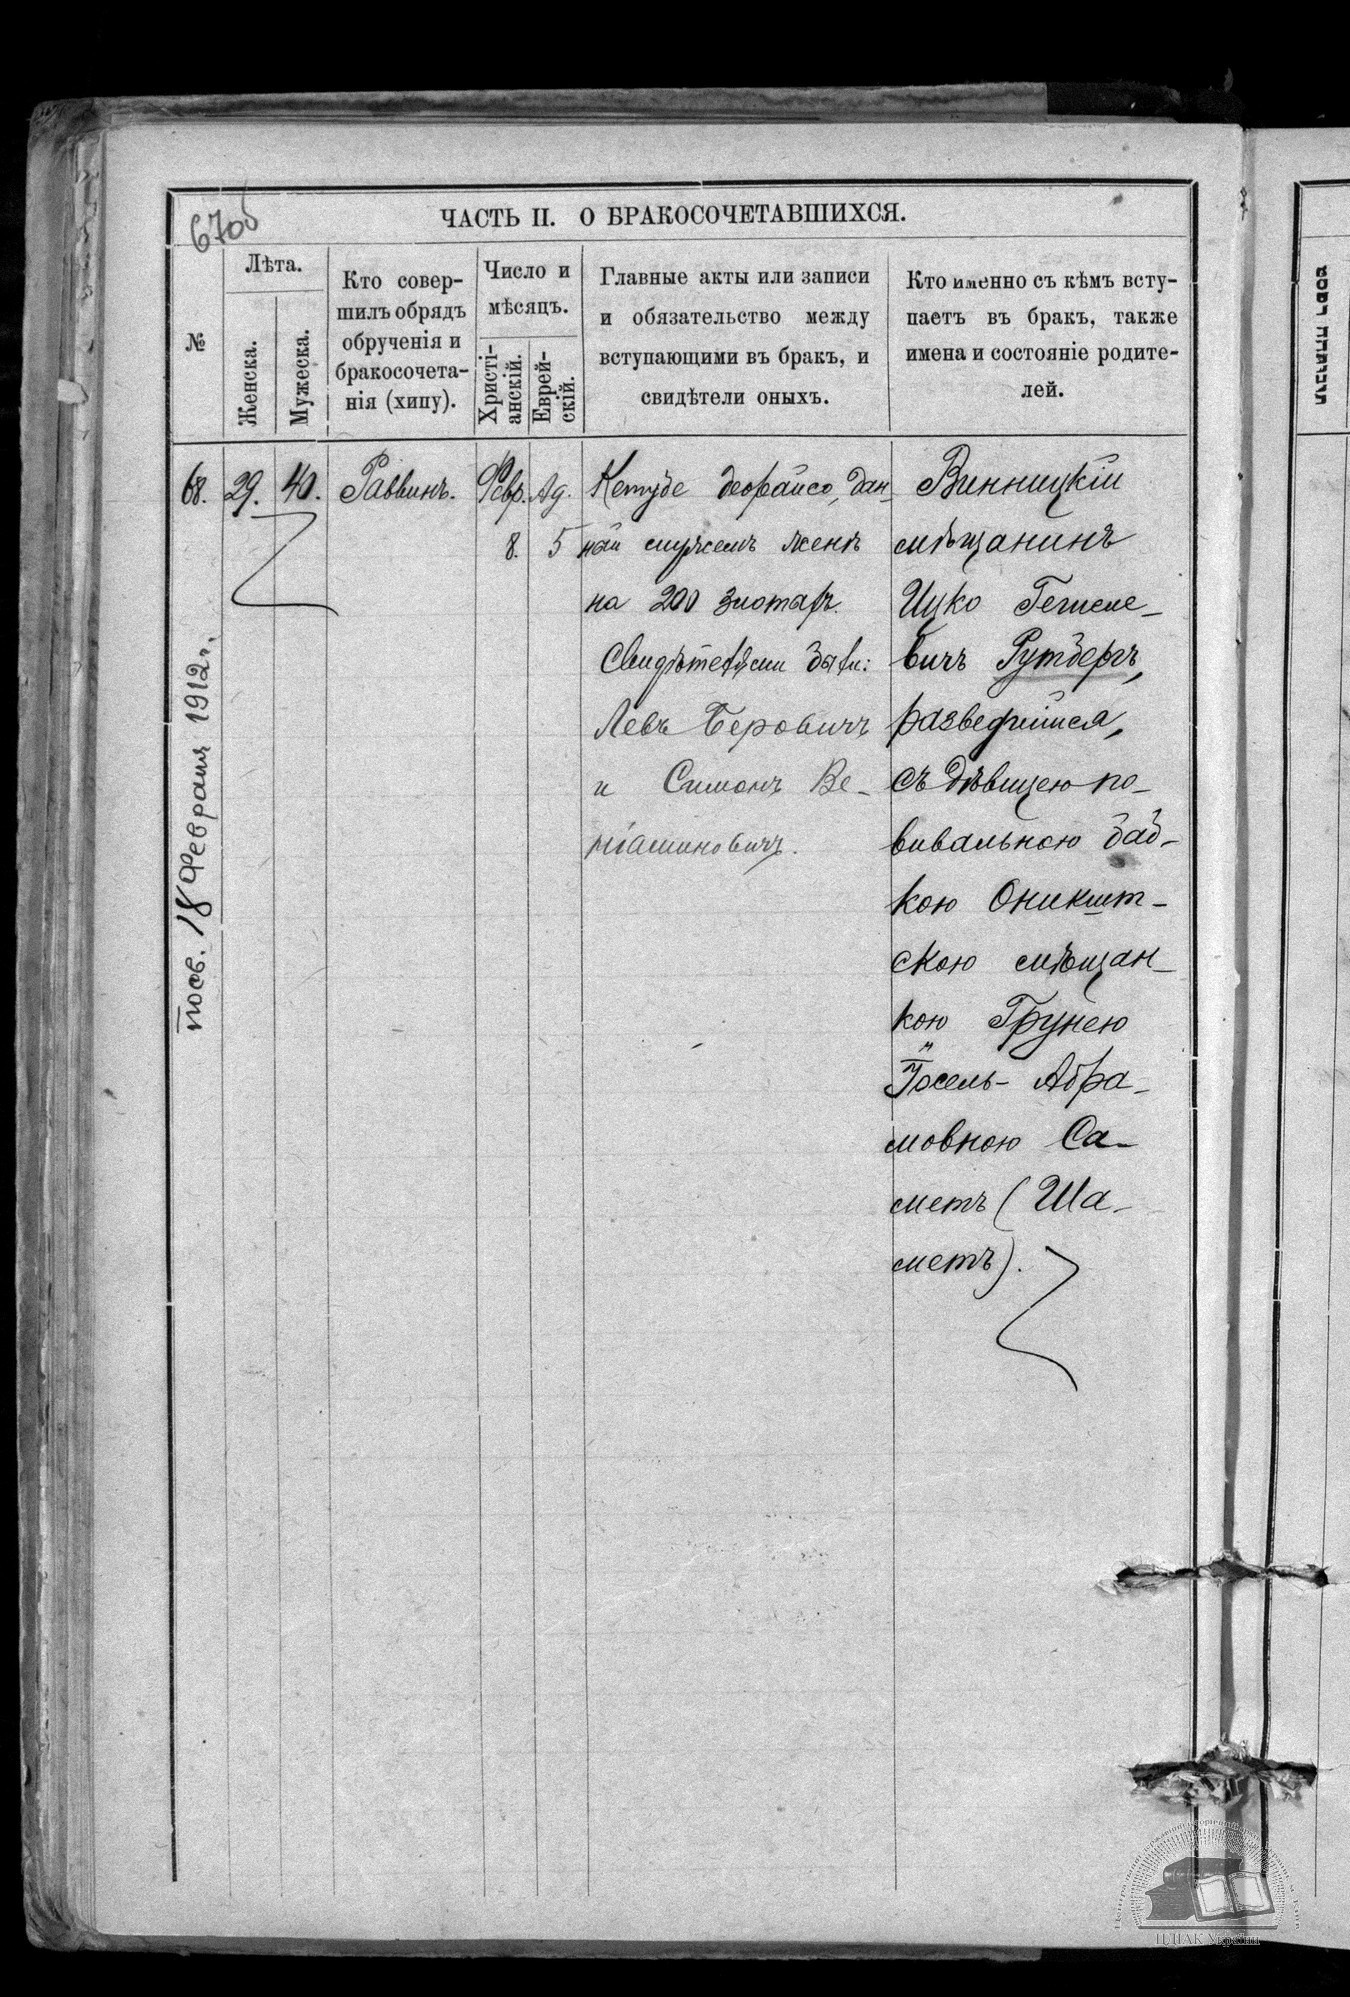 67об
ЧАСТЬ II. О БРАКОСОЧЕТАВШИХСЯ.
№
Лѣта.
Женска.
Мужеска.
Кто совер-
шилъ обрядъ
обрученія и
бракосочета-
нія (хипу).
Число и
мѣсяцъ.
Христі-
анскій.
Еврей-
скій.
Главные акты или записи
и обязательство между
вступающими въ бракъ, и
свидѣтели оныхъ.
Кто именно съ кѣмъ всту-
паетъ въ бракъ, также
имена и состояніе родите-
лей.
68.
29.
40.
Раввинъ.
Февр.
8.
Ад.
5
Кетубе деорайсо, дан-
ной мужемъ женѣ
на 200 злотыхъ.
Свидѣтелями были:
Левъ Беровичъ
и Симонъ Ве-
ніаминовичъ.
Винницкій
мѣщанинъ
Ицко Гегшеле-
вичъ Рутбергъ,
разведшійся,
съ дѣвицею по-
вивальною баб-
кою Оникшт-
скою мѣщан-
кою Грунею
Іосель- Абра-
мовною Са-
метъ (Ша-
метъ).
посв. 18 Февраля 1912 г.
ЦДІАК України